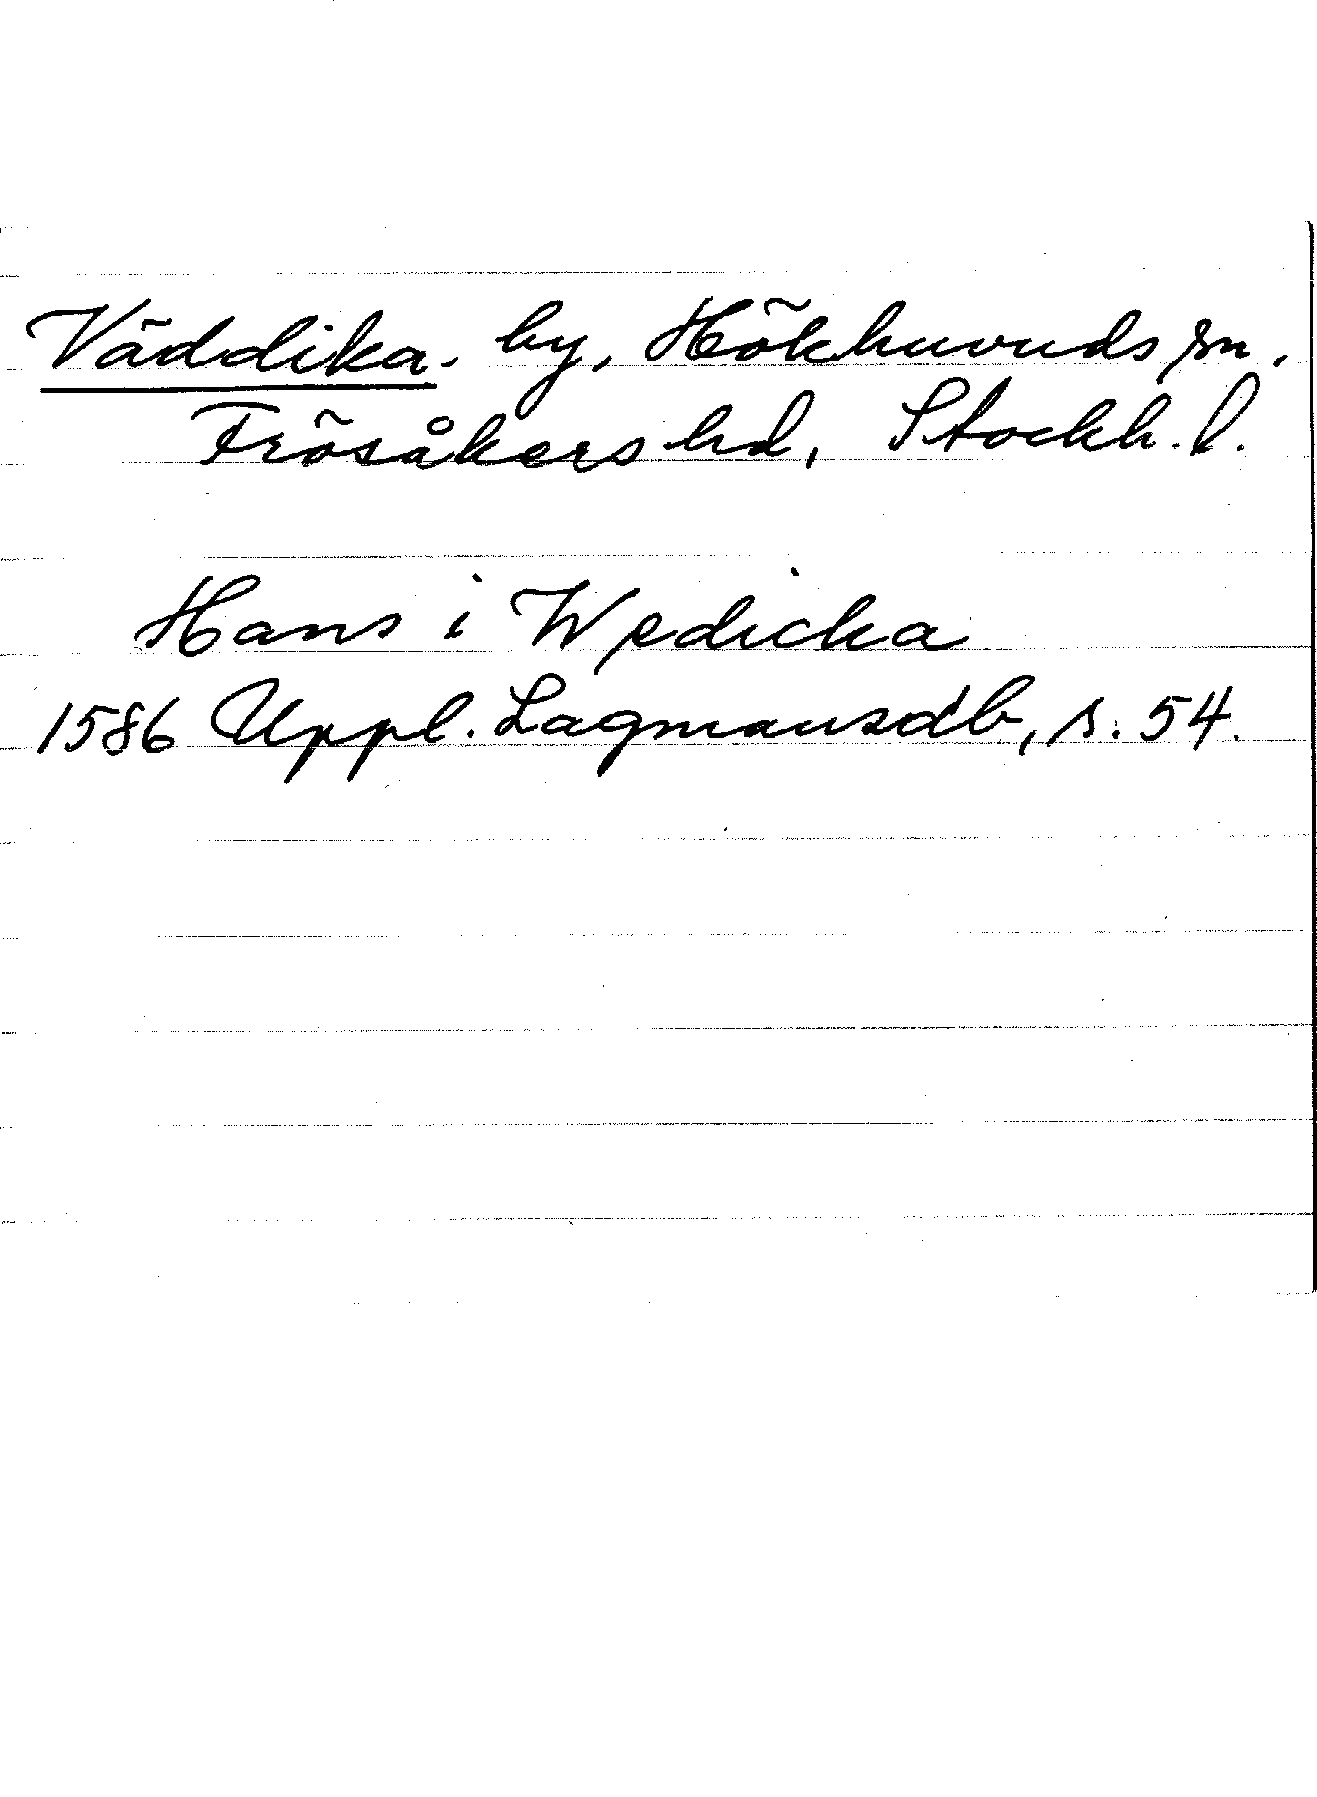 Väddika. by, Hökhuvuds sn.
Frösåkers hd, Stockh. l.
Hans i Wedicka
1586 Uppl. Lagmansdb, s. 54.